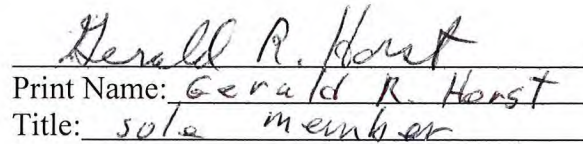 Gerald R. Horst
Print Name: Gerald R. Horst
Title: sole member